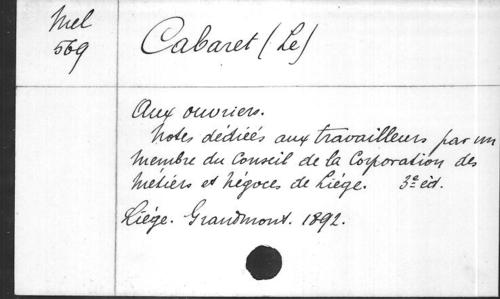 Mel
569
Cabaret (Le)
Aux ouvriers.
Notes dédiées aux travailleurs par un
membre du Conseil de la Corporation des
métiers et négoces de Liége. 3e éd.
Liége. Grandmont. 1892.